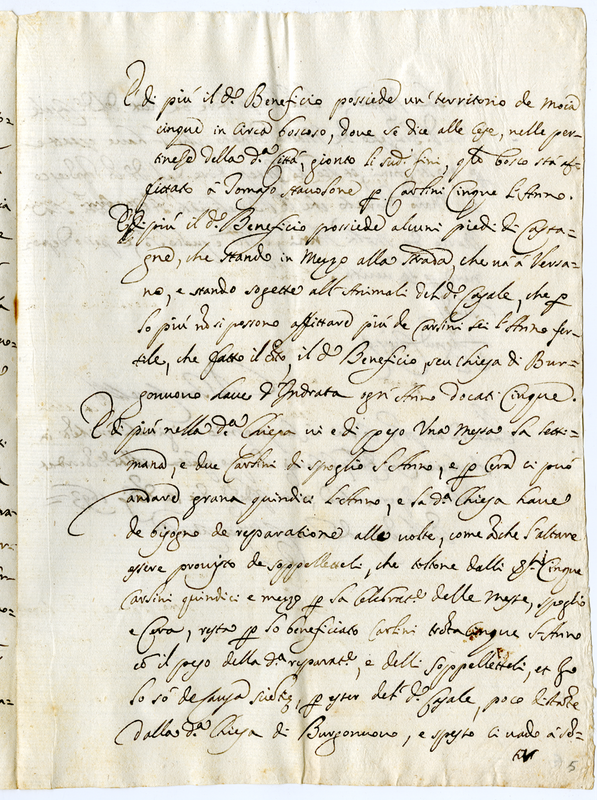 E di più il d.º Beneficio possiede un' territorio de moia
cinque in circa boscoso, dove se dice alle Cese, nelle per=
tinese della d.ª Città, gionto li sud.i fini, q.le bosco sta af=
fittato à Tomaso Stavolone p Carlini Cinque l'Anno.
E di più il d.º Beneficio possiede alcuni piedi di Casta=
gne, che stando in Mezzo alla strada, che và à Versa=
no, e stando sogette all'Animali del d.º Casale, che p
lo più nõ si possono affittare più de Carlini sei l'Anno fer=
tile, che fatto il Cõto, il d.º Beneficio, seu Chiesa di Bur=
gonuovo have d'Indrata ogn' Anno docati Cinque.
E di più nella d.ª Chiesa vi è di peso Una Messa la setti=
mana, e due Carlini di spoglio l'Anno, e p Cera ci può
andare grana quindici l'Anno, e la d.ª Chiesa have
de bisogno de reparatione alle volte, come anche l'altare
essere provisto de soppelletteli, che toltone dalli d.ti Cinque
Carlini quindici e mezzo p la celebrat.e delle messe, spoglio
e Cera, resta p lo beneficiato Carlini trẽta cinque l'Anno
cõ il peso della d.ª reparat.e, e delli soppelletteli, et
lo sò de causa p esser del d.º Casale, poco distãte
dalla d.ª Chiesa di Burgonuovo, e spesso ci vado à
5